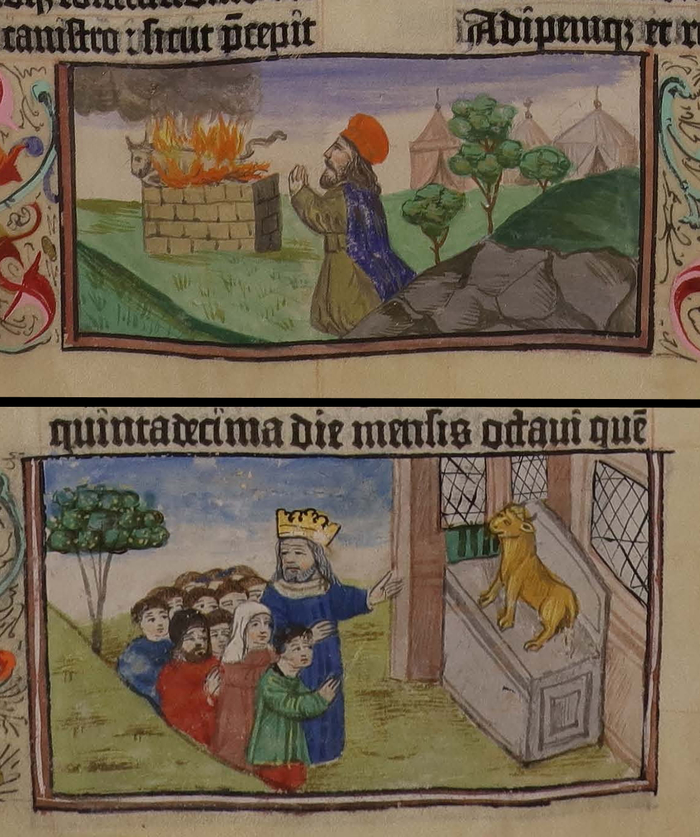 canistro : sicut p̄cepit
Adipemqꝫ et re
quintadecima die mensis octaui quē